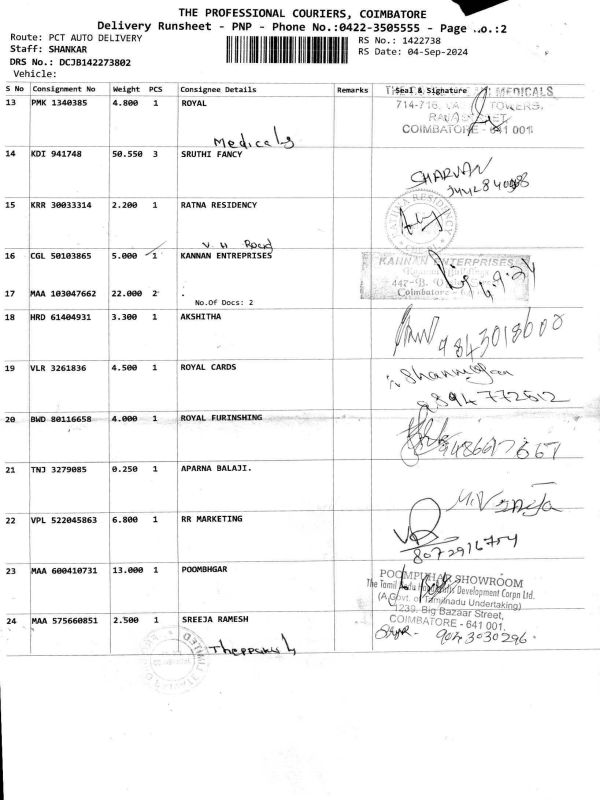 THE PROFESSIONAL COURIERS, COIMBATORE
Delivery Runsheet - PNP - Phone No.:0422-3505555 - Page No.:2
Route: PCT AUTO DELIVERY
Staff: SHANKAR
DRS No.: DCJB142273802
Vehicle:
RS No.: 1422738
RS Date: 04-Sep-2024
S No Consignment No Weight PCS Consignee Details Remarks Seal & Signature
MEDICALS
13 PMK 1340385 4.800 1 ROYAL
714-716, TOWERS,
Medicals
COIMBATORE - 641 001
14 KDI 941748 50.550 3 SRUTHI FANCY
SHARVAN
15 KRR 30033314 2.200 1 RATNA RESIDENCY
RATNA RESIDENCY
V. H Road
16 CGL 50103865 5.000 1 KANNAN ENTREPRISES
KANNAN ENTERPRISES
447-B,
Coimbatore
4.9.24
17 MAA 103047662 22.000 2 .
No.Of Docs: 2
18 HRD 61404931 3.300 1 AKSHITHA
9843018600
19 VLR 3261836 4.500 1 ROYAL CARDS
8894772512
20 BWD 80116658 4.000 1 ROYAL FURINSHING
21 TNJ 3279085 0.250 1 APARNA BALAJI.
22 VPL 522045863 6.800 1 RR MARKETING
8072916754
23 MAA 600410731 13.000 1 POOMBHGAR
POOMPUHAR SHOWROOM
The Tamil Nadu Handicrafts Development Corpn Ltd.
(A Govt. of Tamilnadu Undertaking)
1239, Big Bazaar Street,
COIMBATORE - 641 001.
24 MAA 575660851 2.500 1 SREEJA RAMESH
9043030296